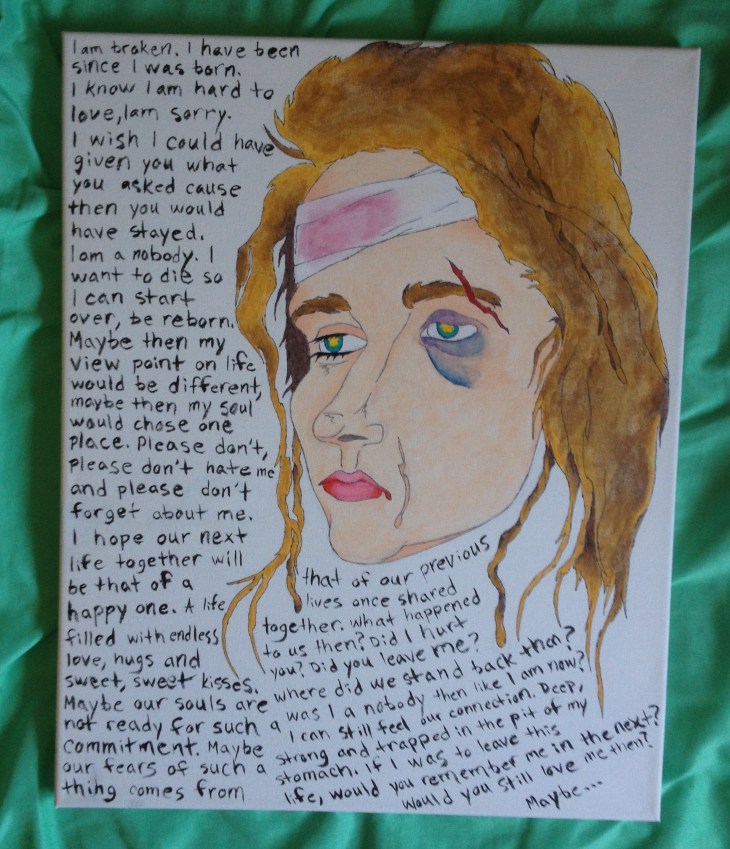 I am broken. I have been
since I was born.
I know I am hard to
love, I am sorry.
I wish I could have
given you what
you asked cause
then you would
have stayed.
I am a nobody. I
want to die so
I can start
over, be reborn.
Maybe then my
view point on life
would be different,
maybe then my soul
would chose one
place. Please don't,
please don't hate me
and please don't
forget about me.
I hope our next
life together will
be that of a
happy one. A life
filled with endless
love, hugs and
sweet, sweet kisses.
Maybe our souls are
not ready for such a
commitment. Maybe
our fears of such a
thing comes from
that of our previous
lives once shared
together. What happened
to us then? Did I hurt
you? Did you leave me?
where did we stand back then?
was I a nobody then like I am now?
I can still feel our connection. Deep,
strong and trapped in the pit of my
stomach. If I was to leave this
life, would you remember me in the next?
would you still love me then?
Maybe...